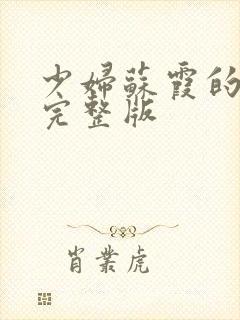 少婦蘇霞的
完整版
肖業虎